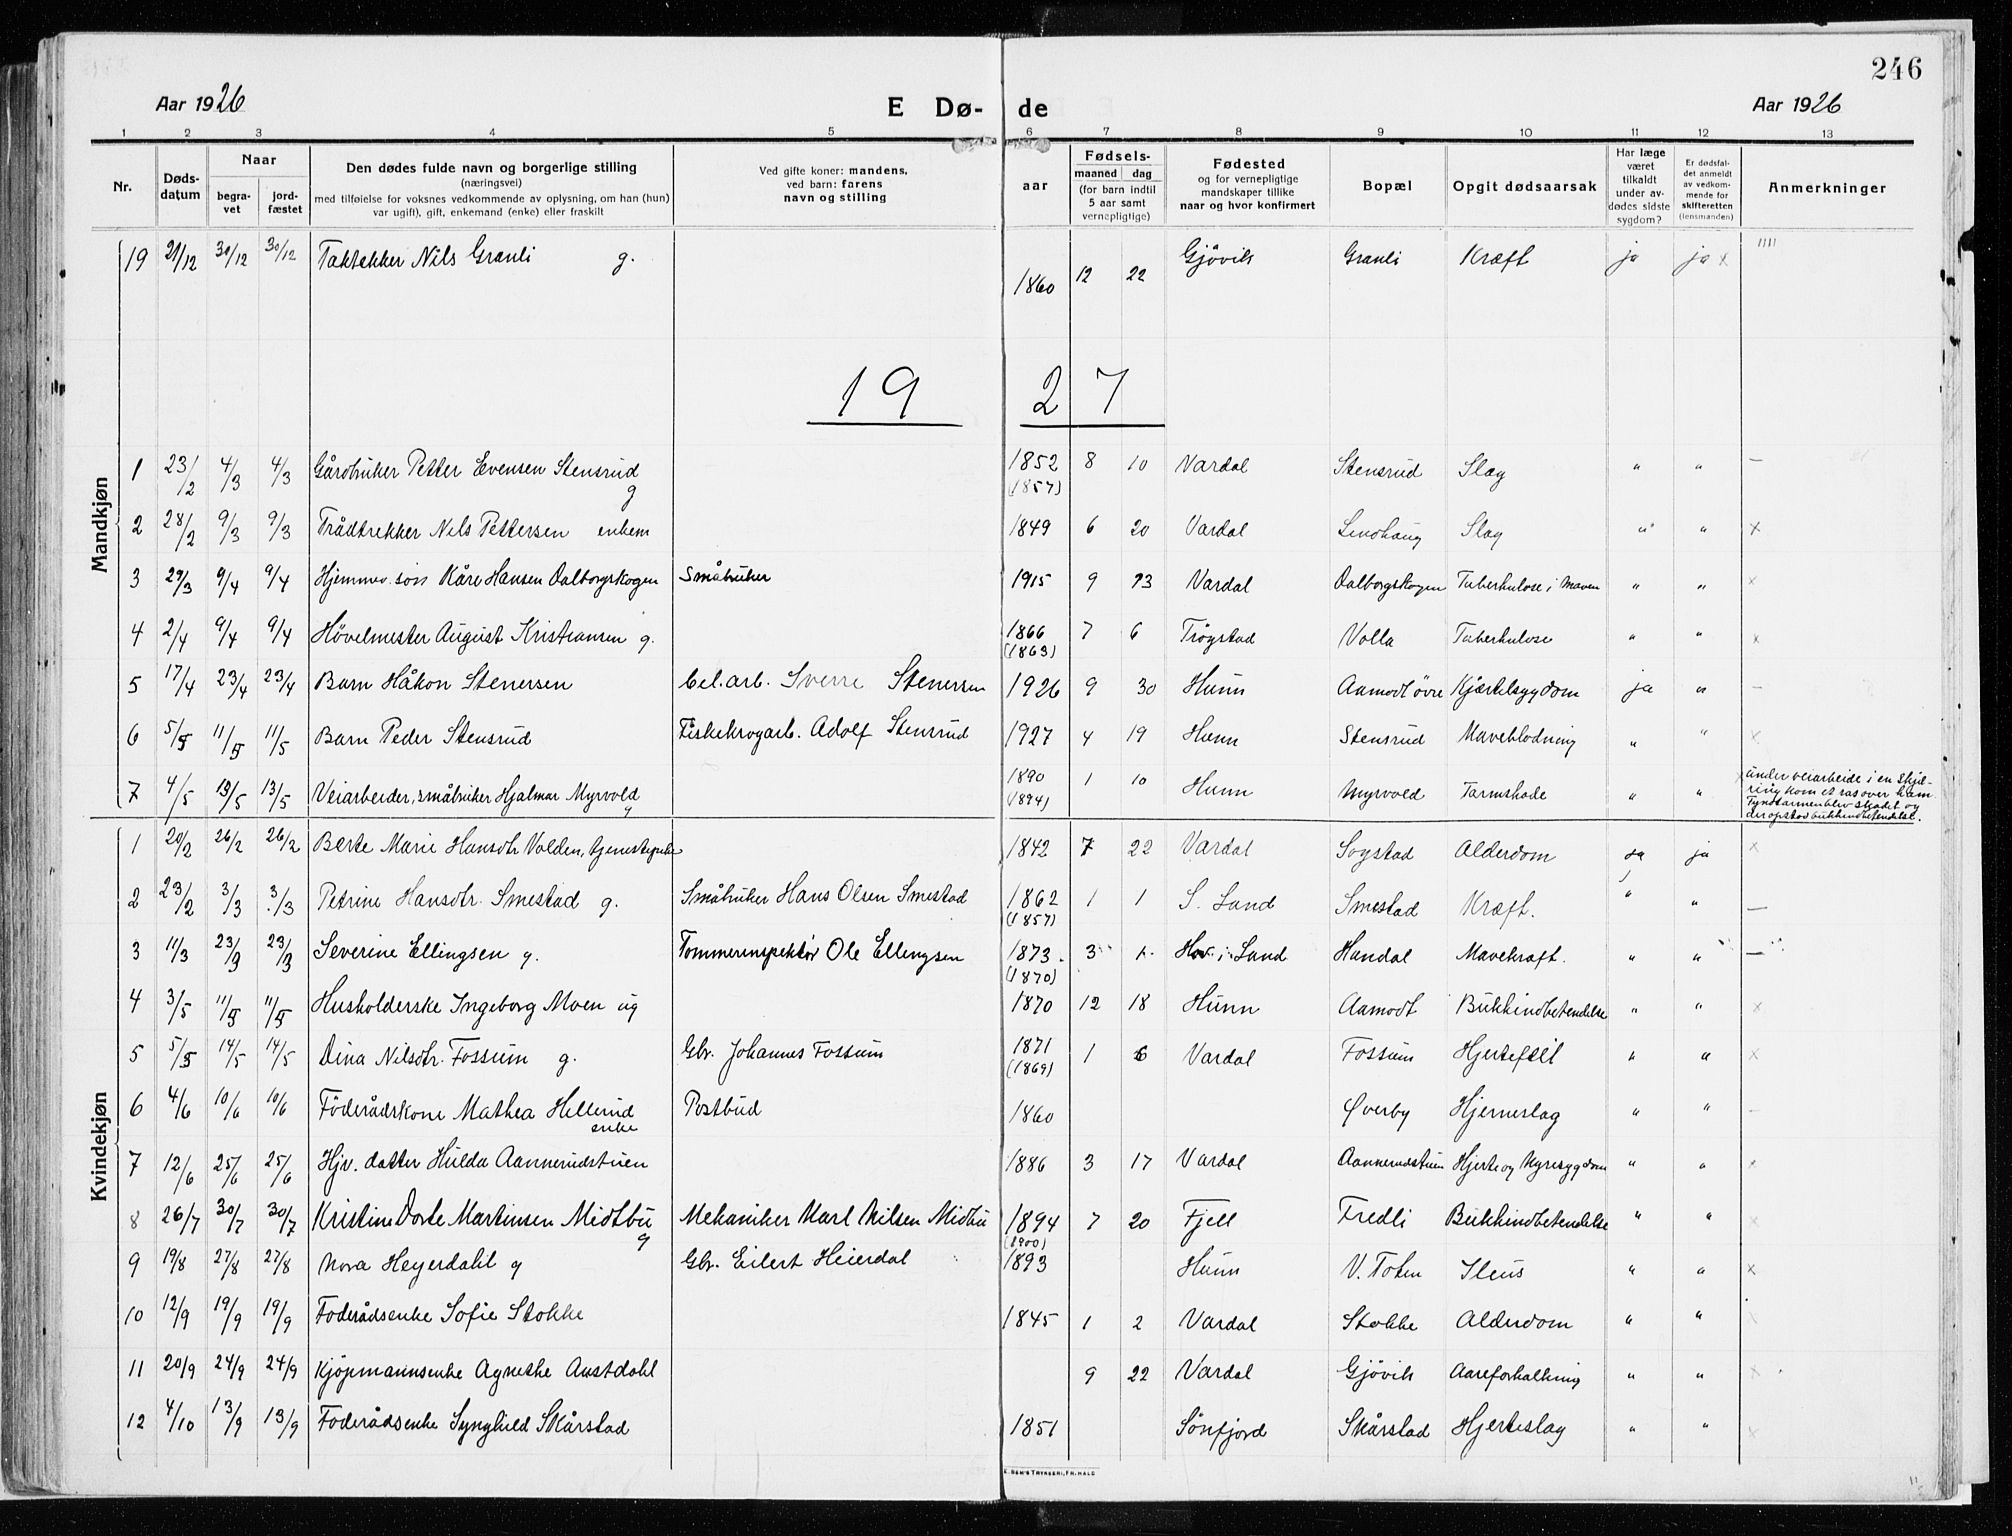 246
Aar 1926 E Dø- de Aar 1926
1 2 3 4 5 6 7 8 9 10 11 12 13
Nr. Døds-datum Naar begra-vet jord-fæstet Den dødes fulde navn og borgerlige stilling (næringsvei) med tilføielse for voksnes vedkommende av oplysning, om han (hun) var ugift), gift, enkemand (enke) eller fraskilt Ved gifte koner: mandens, ved barn: farens navn og stilling aar Fødsels- maaned dag (for barn indtil 5 aar samt vernepligtige) Fødested og for vernepligtige mandskaper tillike naar og hvor konfirmert Bopæl Opgit dødsaarsak Har læge været tilkaldt under av-dødes sidste sygdom? Er dødsfal-det anmeldt av vedkom-mende for skifteretten (lensmanden) Anmerkninger
19 21/12 30/12 30/12 Taktekker Nils Granli g. 1860 12 22 Gjøvik Granli Kræft ja ja x
19 27
Mandkjøn
1 23/2 4/3 4/3 Gårdbruker Petter Evensen Stensrud g 1852 (1857) 8 10 Vardal Stensrud Slag " " –
2 28/2 9/3 9/3 Trådtrekker Nils Pettersen enkem 1849 6 20 Vardal Lindhaug Slag " " x
3 29/3 9/4 9/4 Hjemmev. søn Kåre Hansen Dalborgskogen Småbruker 1915 9 23 Vardal Dalborgskogen Tuberkulose i Maven " " x
4 2/4 9/4 9/4 Høvelmester August Kristiansen g. 1866 (1863) 7 6 Trøgstad Volla Tuberkulose " " x
5 17/4 23/4 23/4 Barn Håkon Stenersen Cel.arb. Sverre Stenersen 1926 9 30 Hunn Aamodt øvre Kjertelsygdom ja " –
6 5/5 11/5 11/5 Barn Peder Stensrud Fiskekrogarb. Adolf Stensrud 1927 4 19 Hunn Stensrud Maveblødning " " x
7 4/5 13/5 13/5 Veiarbeider, småbruker Hjalmar Myrvold g 1890 (1894) 1 10 Hunn Myrvold Tarmskade " " x under veiarbeide i en skjæ-
ring kom et ras over ham.
Tyndtarmen blev skadet og
derop stod bukhindbetendelse.
Kvindekjøn
1 20/2 26/2 26/2 Berte Marie Hansdtr Volden, tjenestepike 1842 7 22 Vardal Sogstad Alderdom ja ja x
2 23/2 3/3 3/3 Petrine Hansdtr. Smestad g. Småbruker Hans Olsen Smestad 1862 (1857) 1 1 S. Land Smestad Kræft. " " –
3 11/3 23/3 23/3 Severine Ellingsen g. Tømmerinspektør Ole Ellingsen 1873 (1870) 3 Hov i Land Hundal Mavekræft. " " –
4 3/5 11/5 11/5 Husholderske Ingeborg Moen ug 1870 12 18 Hunn Aamodt Bukhindbetendelse " " x
5 5/5 14/5 14/5 Dina Nilsdtr. Fossum g. Gbr. Johannes Fossum 1871 (1869) 1 6 Vardal Fossum Hjertefeil " " x
6 4/6 10/6 10/6 Føderådskone Mathea Hillerud enke Postbud 1860 Øverby Hjerneslag " " –
7 12/6 25/6 25/6 Hjv. datter Hulda Aannerudstuen 1886 3 17 Vardal Aannerudstuen Hjerte og Nyresygdom " " x
8 26/7 30/7 30/7 Kristine Dorte Martinsen Midtbu g Mekaniker Karl Nilsen Midbu 1894 (1900) 7 20 Fjell Fredli Bukhindbetendelse " " x
9 19/8 27/8 27/8 Nora Heyerdahl g Gbr. Eilert Heierdal 1893 Hunn V. Toten Ileus " " x
10 12/9 19/9 19/9 Føderådsenke Sofie Stokke 1845 1 2 Vardal Stokke Alderdom " "
11 20/9 24/9 24/9 Kjøpmannsenke Agnethe Austdahl 9 22 Vardal Gjøvik Aareforkalkning " " x
12 4/10 13/9 13/9 Føderådsenke Synghild Skårstad 1851 Sönfjord Skårstad Hjerteslag " " x
E. SEM'S TRYKKERI, FR. HALD